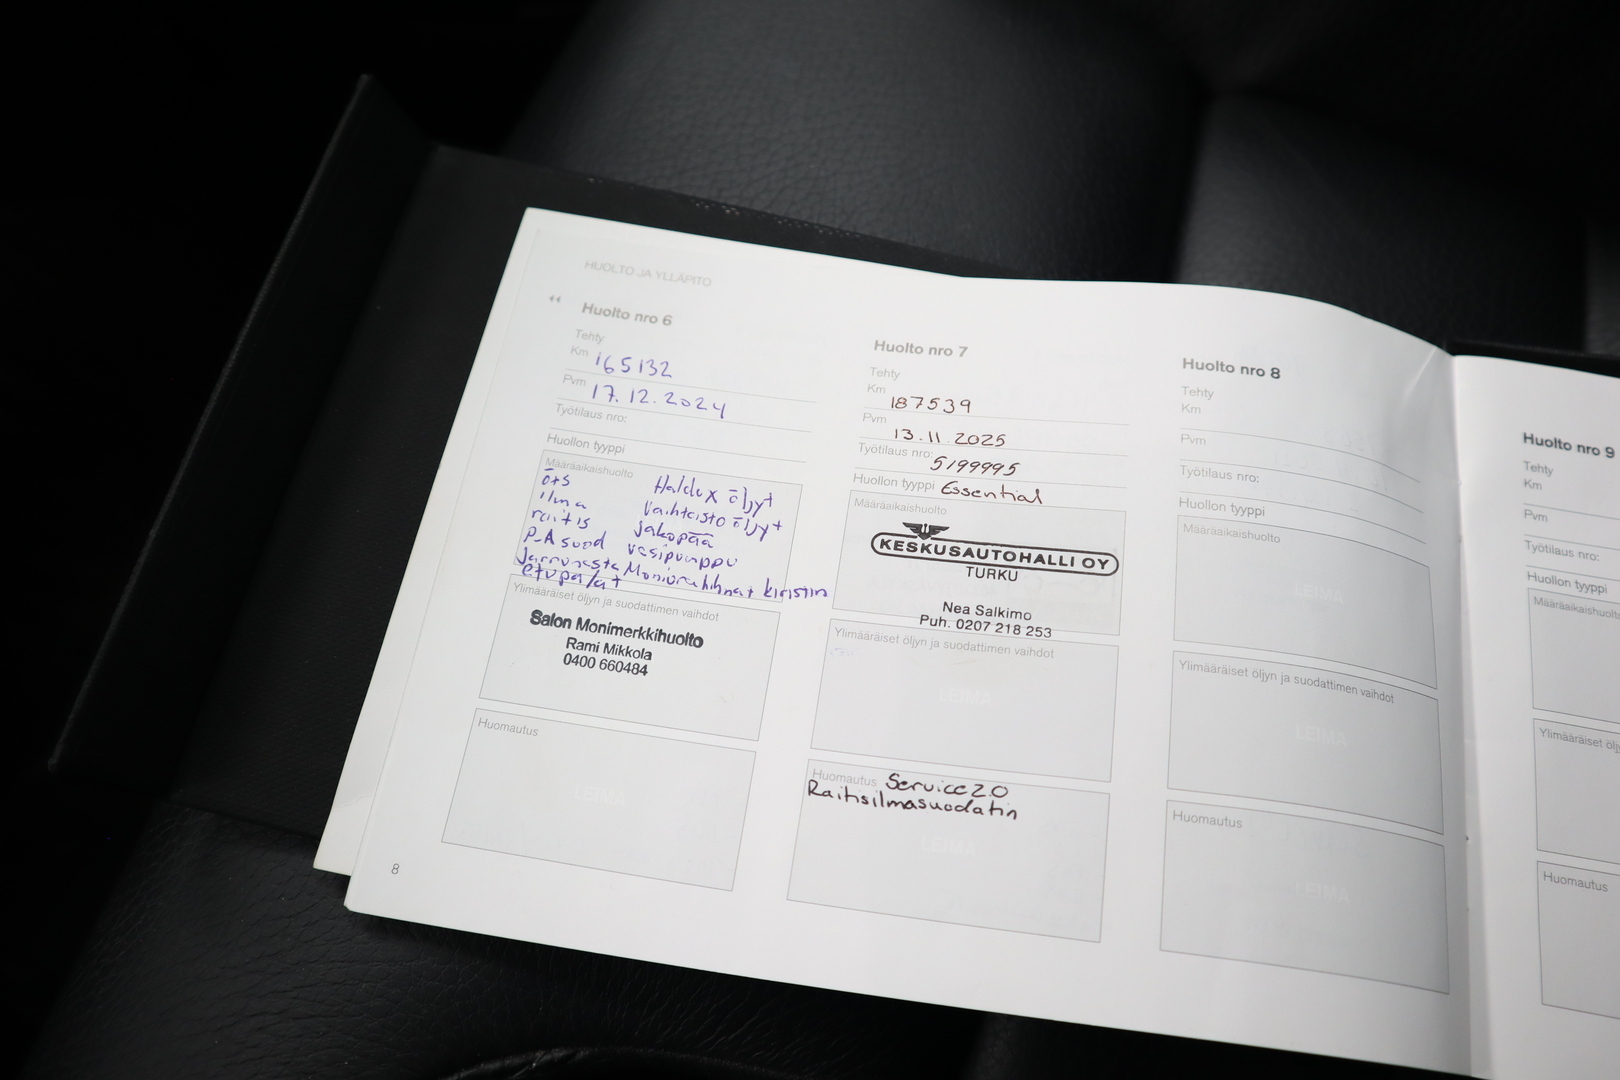 HUOLTO JA YLLÄPITO
Huolto nro 6
Tehty
Km 165132
Pvm 17.12.2024
Työtilaus nro:
Huollon tyyppi
Määräaikaishuolto
öts Haldex öljyt
ilma Vaihteisto öljyt
raitis jakopää
P-A suod vesipumppu
Jarrunesta Moniurahihnat kiristin
etupalat
Ylimääräiset öljyn ja suodattimen vaihdot
Salon Monimerkkihuolto
Rami Mikkola
0400 660484
Huomautus
LEIMA
8
Huolto nro 7
Tehty
Km 187539
Pvm 13.11.2025
Työtilaus nro: 5199995
Huollon tyyppi Essential
Määräaikaishuolto
KESKUSAUTOHALLI OY
TURKU
Nea Salkimo
Puh. 0207 218 253
Ylimääräiset öljyn ja suodattimen vaihdot
LEIMA
Huomautus Service 2.0
Raitisilmasuodatin
LEIMA
Huolto nro 8
Tehty
Km
Pvm
Työtilaus nro:
Huollon tyyppi
Määräaikaishuolto
LEIMA
Ylimääräiset öljyn ja suodattimen vaihdot
LEIMA
Huomautus
LEIMA
Huolto nro 9
Tehty
Km
Pvm
Työtilaus nro:
Huollon tyyppi
Määräaikaishuolto
Ylimääräiset öljy
Huomautus